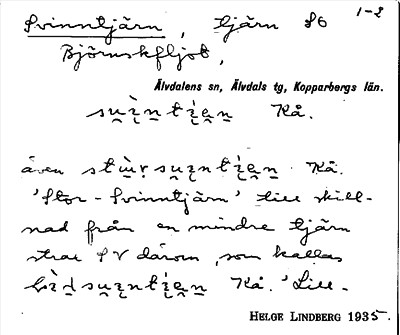 Svinntjärn, tjärn SO 1-2
Björnskfljot,
Älvdalens sn, Älvdals tg, Kopparbergs län.
Kå.
även Kå.
'Stor-Svinntjärn' till skill-
nad från en mindre tjärn
strax SV därom, som kallas
Kå. 'Lill-
HELGE LINDBERG 1935.